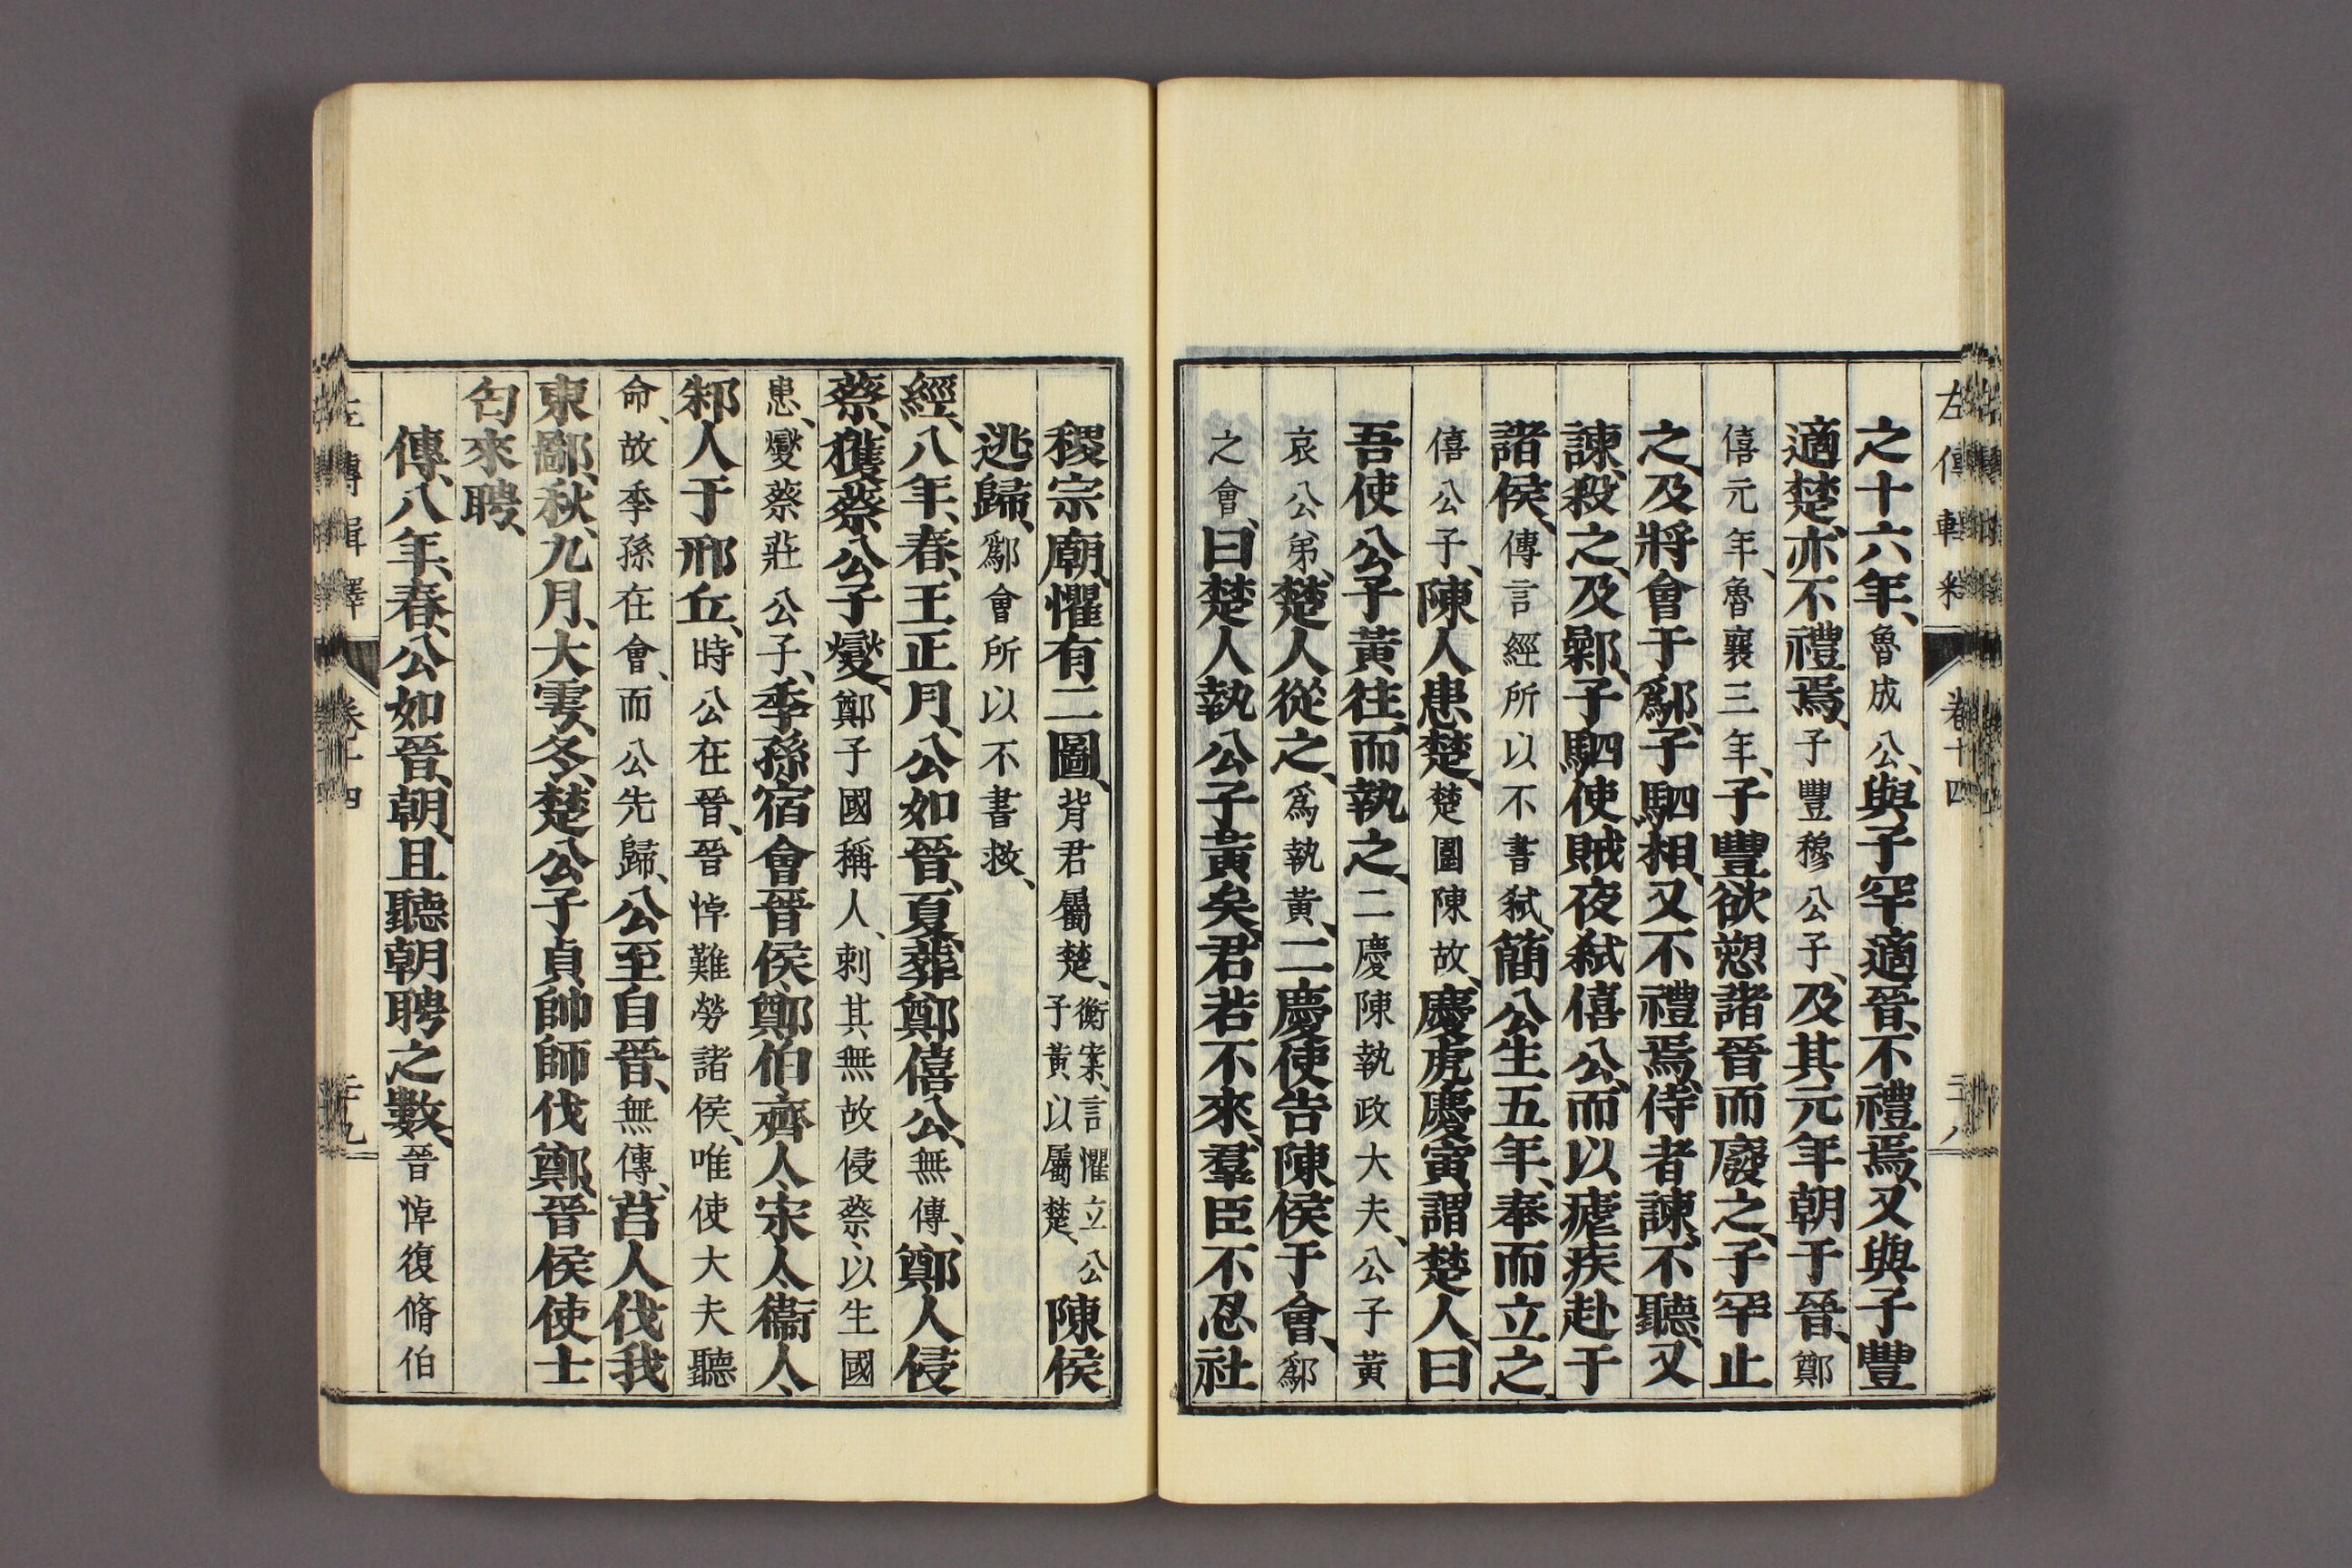 之十六年、魯成公、與子罕適晉、不禮焉、又與子豐
適楚、亦不禮焉、子豐穆公子、及其元年朝于晉、鄭
僖元年、魯襄三年、子豐欲愬諸晉而廢之、子罕止
之、及將會于鄬、子駟相、又不禮焉、侍者諫、不聽、又
諫、殺之、及鄵、子駟使賊夜弑僖公、而以瘧疾赴于
諸侯、傳言經所以不書弑、簡公生五年、奉而立之、
僖公子、陳人患楚、楚圍陳故、慶虎慶寅、謂楚人、曰
吾使公子黃往、而執之、二慶陳執政大夫、公子黃
哀公弟、楚人從之、爲執黃、二慶使告陳侯于會、鄬
之會、曰楚人執公子黃矣、君若不來、羣臣不忍社
左傳輯釋 卷十四
稷宗廟、懼有二圖、背君屬楚、衡案、言懼立公子黃以屬楚、陳侯
逃歸、鄬會所以不書救、
經、八年、春、王正月、公如晉、夏、葬鄭僖公、無傳、鄭人侵
蔡、獲蔡公子燮、鄭子國稱人、刺其無故侵蔡、以生國
患、燮蔡莊公子、季孫宿會晉侯、鄭伯、齊人、宋人、衞人、
邾人于邢丘、時公在晉、晉悼難勞諸侯、唯使大夫聽
命、故季孫在會、而公先歸、公至自晉、無傳、莒人伐我
東鄙、秋、九月、大雩、冬、楚公子貞帥師伐鄭、晉侯使士
匄來聘、
傳、八年、春、公如晉、朝、且聽朝聘之數、晉悼復脩伯
左傳輯釋 卷十四 二十九